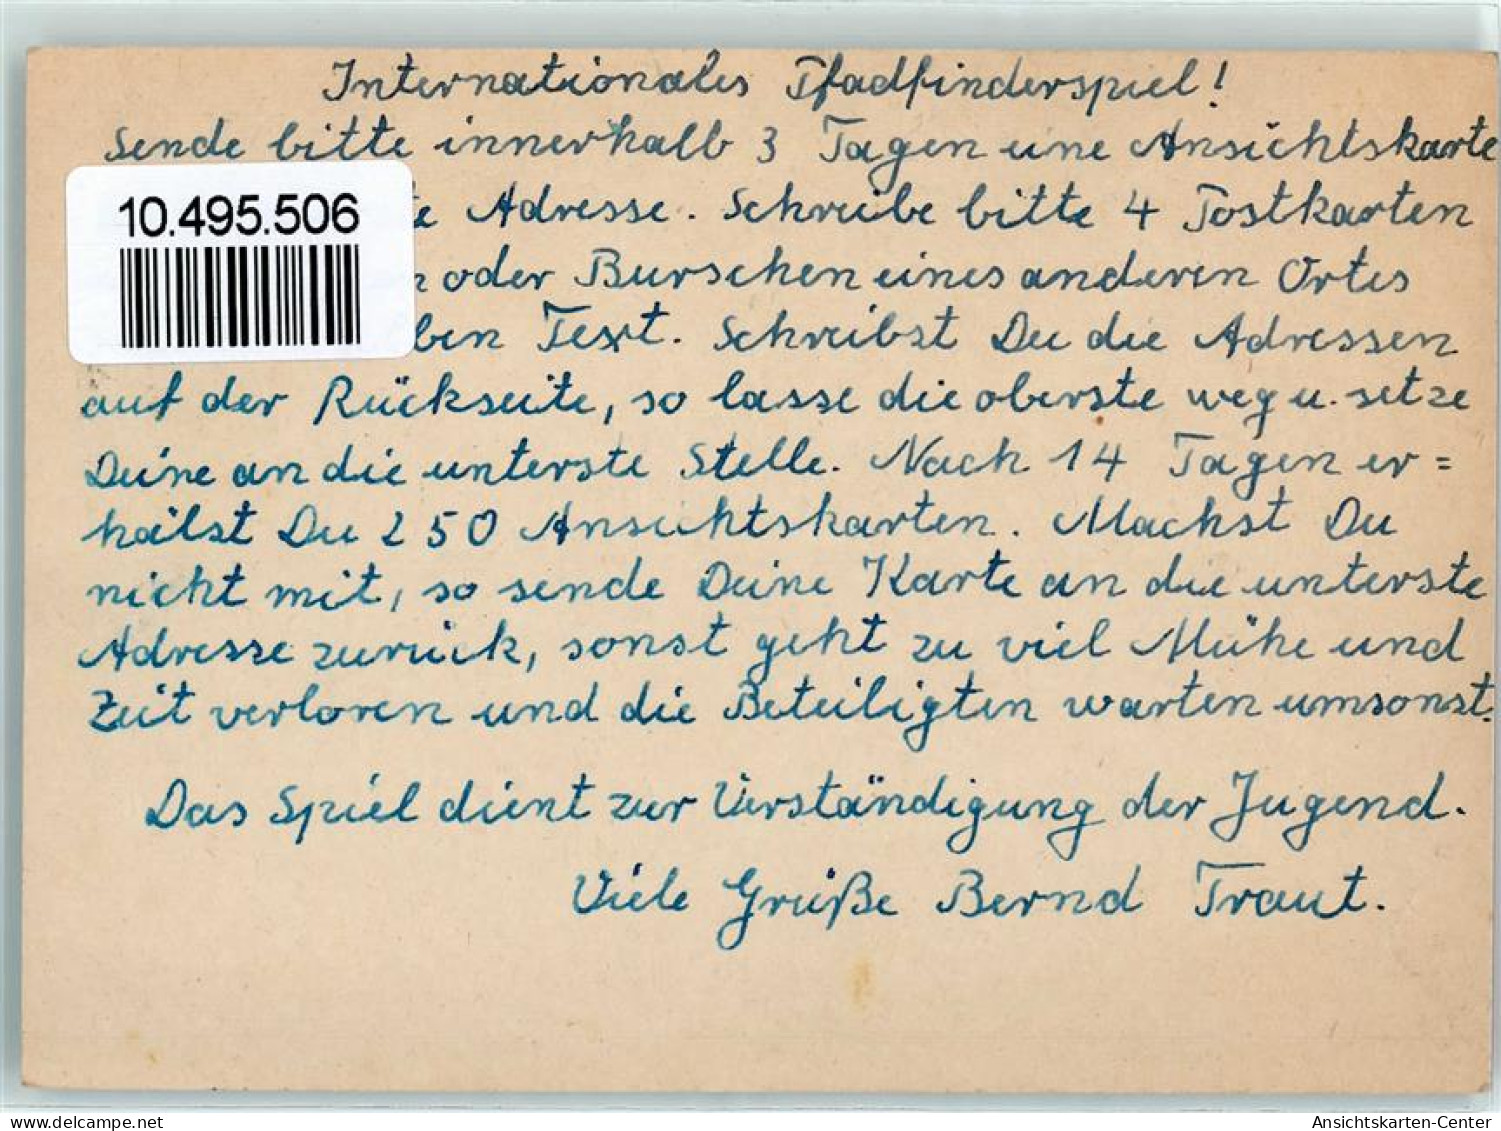 Internationales Pfadfinderspiel!
Sende bitte innerhalb 3 Tagen eine Ansichtskarte
te Adresse. Schreibe bitte 4 Postkarten
oder Burschen eines anderen Ortes
ben Text. Schreibst Du die Adressen
auf der Rückseite, so lasse die oberste weg u. setze
Deine an die unterste Stelle. Nach 14 Tagen er=
hälst Du 250 Ansichtskarten. Machst Du
nicht mit, so sende Deine Karte an die unterste
Adresse zurück, sonst geht zu viel Mühe und
Zeit verloren und die Beteiligten warten umsonst.
Das Spiel dient zur Verständigung der Jugend.
Viele Grüße Bernd Traut.
10.495.506
www.delcampe.net
Ansichtskarten-Center